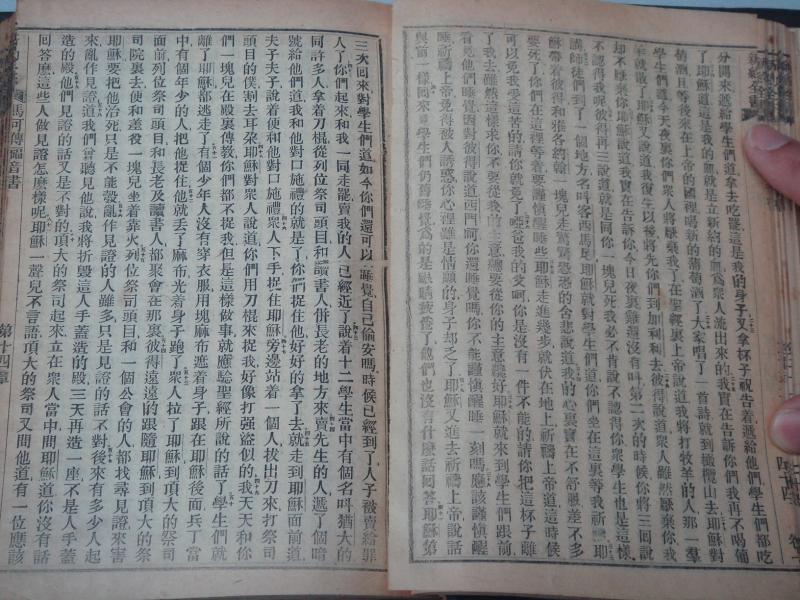 新經全書
分開來遞給學生們道拿去吃罷這是我的身子又拿杯子祝告着遞給他們學生們都吃
了耶穌道這是我的血就是立新約的血爲衆人流出來的我實在告訴你們我再不喝葡
萄酒直等後來在上帝的國裡喝新的葡萄酒了大家唱了一首詩就到橄欖山去耶穌對
學生們道今天夜裏你們衆人將厭棄我了在聖經裏上帝說道我將打牧羊的人那一羣
羊就散了耶穌又說道我復生以後將先你們到加利利去彼得說道衆人雖然厭棄你我
却不厭棄你耶穌道我實在告訴你今日夜裏雞還沒有叫第二次的時候你將三回說
不認得我呢彼得再三說道就是同你一塊兒死我必不肯說不認得你衆學生也是這樣
講師徒們到了一個地方名叫客西馬尼耶穌就對學生們道你們坐在這裏等我祈禱耶
穌帶着彼得和雅各約翰一塊兒走驚驚恐恐的舍悲說道我的心裏實在不舒服差不多
要死了你們在這裡等着要謹愼醒睡些耶穌走進幾步就伏在地上祈禱上帝道這時候
可以免我受這苦的請你就免了罷爸我的父呵你是沒有一件不能的請你把這杯子離
了我去雖然這樣求你不要從我的主意總要從你的主意纔好耶穌就來到學生們跟前
看見他們睡覺耶穌對彼得說道西門呵你週睡覺嗎你不能謹愼醒睡一刻嗎應該謹愼醒
睡祈禱上帝免得被人誘惑你心裡雖是情願的身子却乏了耶穌又進去祈禱上帝說話
與前一樣回來
三次回來對學生們道如今你們還可以睡覺自己偷安嗎時候已經到了人子被賣給罪
人了你們起來和我一同走罷賣我的人已經近了說着十二學生當中有個名叫猶大的
同許多人拿着刀棍從列位祭司頭目和讀書人併長老的地方來賣先生的人遞了個暗
號給他們道我和他對口施禮的就是了你們捉住他好好的拿了去就走到耶穌面前道
夫子夫子說着便和他對口施禮衆人下手捉住耶穌旁邊站着一個人拔出刀來打祭司
頭目的僕割去耳朵耶穌對衆人說道你們用刀棍來捉我好像打强盜似的我天天和你
們一塊兒在殿裏傳教你們都不捉我但是這樣做事就應驗聖經所說的話了學生們就
離了耶穌都逃走了有個少年人沒有穿衣服用塊麻布遮着身子跟在耶穌後面兵丁當
中有個年少的人把他捉住他就丢了麻布光着身子跑了衆人拉了耶穌到頂大的祭司
面前列位祭司頭目和長老及讀書人都聚會在那裏彼得遠遠的跟隨耶穌到頂大的祭
司院裏去便和差役一塊兒坐着靠火列位祭司頭目和一個公會的人都找尋見證來害
耶穌要把他治死只是不能彀亂作見證的人雖多只是見證的話不對後來有多少人起
來亂作見證道我們曾聽見他說我將折毀這人手蓋造的殿三天再造一座不是人手蓋
造的殿他們見證的話又是不對的頂大的祭司起來立在衆人當中間耶穌道你沒有話
回答麽這些人做見證怎麽樣呢耶穌一聲兒不言語頂大的祭司又問他道有一位應該
馬可傳福音書
第十四章